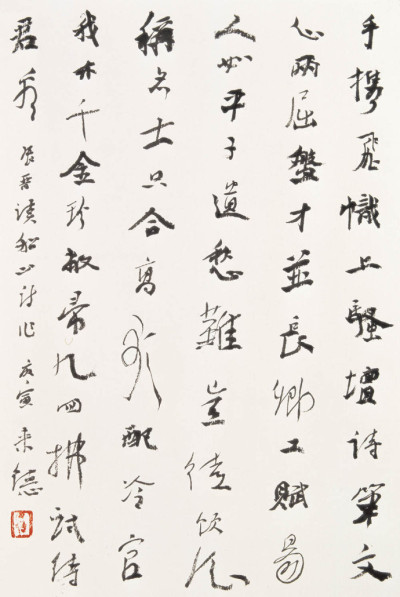 手携飛幟上騷壇詩筆文
心兩屈盤才並長卿工賦易
人如平子道愁難豈
稱名士只合高配冷官
我亦千金珍敝帚几回拂拭待
君看 讀船山詩作 戊寅